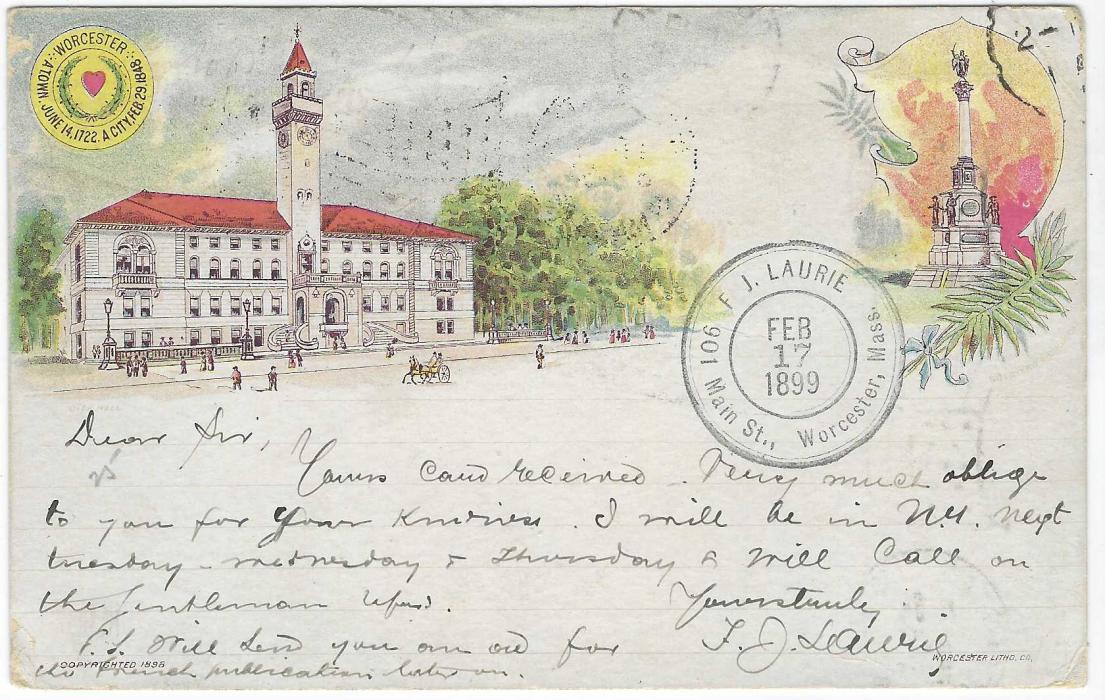 WORCESTER
A TOWN, JUNE 14, 1722. A CITY, FEB. 29. 1848.
2-
F J. LAURIE
FEB
17
1899
901 Main St., Worcester, Mass.
Dear Sir,
Yours card received. Very much oblige
to you for your kindness. I will be in N.Y. next
tuesday - wednesday & Thursday & will call on
the gentleman
Yours truly,
P.S. Will send you an ad for F. J. Laurie
the French publication later on.
COPYRIGHTED 1898
WORCESTER LITHO. CO.